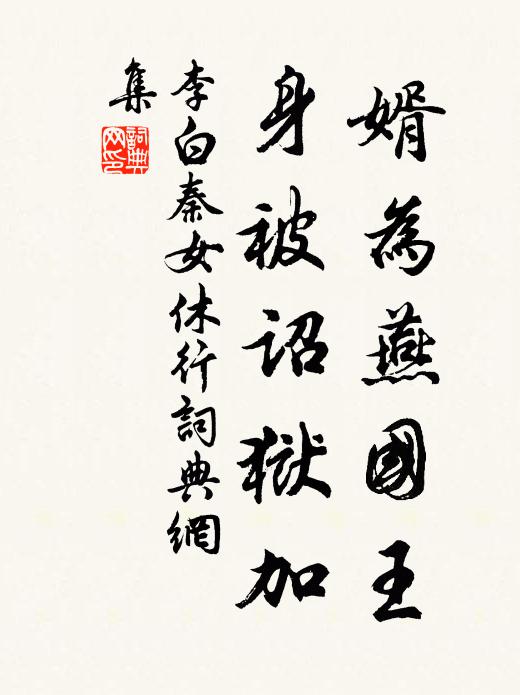 婿為燕國王
身被詔獄加
李白秦女休行詞典網
集
詞典
网印